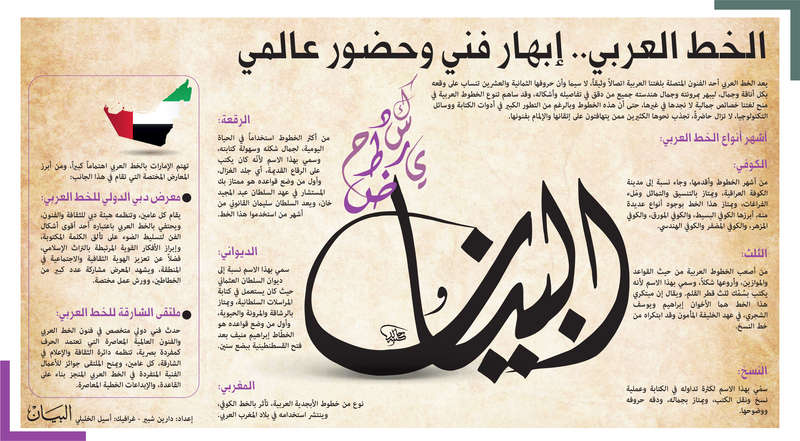 الخط العربي.. إبهار فني وحضور عالمي
يعد الخط العربي أحد الفنون المتصلة بلغتنا العربية اتصالاً وثيقاً، لا سيما وأن حروفها الثمانية والعشرين تنساب على وقعه
بكل أناقة وجمال، ليبهر بمرونته وجمال هندسته جميع من دقق في تفاصيله وأشكاله، وقد ساهم تنوع الخطوط العربية في
منح لغتنا خصائص جمالية لا نجدها في غيرها، حتى أن هذه الخطوط وبالرغم من التطور الكبير في أدوات الكتابة ووسائل
التكنولوجيا، لا تزال حاضرةً، تجذب نحوها الكثيرين ممن يتهافتون على إتقانها والإلمام بفنونها.
أشهر أنواع الخط العربي:
الكوفي:
من أشهر الخطوط وأقدمها، وجاء نسبة إلى مدينة
الكوفة العراقية، ويمتاز بالتنسيق والتماثل وملء
الفراغات، ويمتاز هذا الخط بوجود أنواع عديدة
منه، أبرزها الكوفي البسيط، والكوفي المورق، والكوفي
المزهر، والكوفي المضفر والكوفي الهندسي.
الثلث:
من أصعب الخطوط العربية من حيث القواعد
والموازين، وأروعها شكلاً، وسمي بهذا الاسم لأنه
يكتب بسُمْك ثلث قطر القلم. ويقال إن مبتكري
هذا الخط هما الأخوان إبراهيم ويوسف
الشجري، في عهد الخليفة المأمون وقد ابتكراه من
خط النسخ.
النسخ:
سمّي بهذا الاسم لكثرة تداوله في الكتابة وعملية
نسخ ونقل الكتب، ويمتاز بجماله، ودقه حروفه
ووضوحها.
الرقعة:
من أكثر الخطوط استخداماً في الحياة
اليومية، لجمال شكله وسهولة كتابته،
وسمي بهذا الاسم لأنه كان يكتب
على الرقاع القديمة، أي جلد الغزال،
وأول من وضع قواعده هو ممتاز بك
المستشار في عهد السلطان عبد المجيد
خان، ويعد السلطان سليمان القانوني من
أشهر من استخدموا هذا الخط.
الديواني:
سمي بهذا الاسم نسبة إلى
ديوان السلطان العثماني
حيث كان يستعمل في كتابة
المراسلات السلطانية، ويمتاز
بالرشاقة والمرونة والحيوية،
وأول من وضع قواعده هو
الخطّاط إبراهيم منيف بعد
فتح القسطنطينية ببضع سنين.
المغربي:
نوع من خطوط الأبجدية العربية، تأثر بالخط الكوفي،
وينتشر استخدامه في بلاد المغرب العربي.
البيان
تهتم الإمارات بالخط العربي اهتماماً كبيراً، ومن أبرز
المعارض المختصة التي تقام في هذا الجانب:
معرض دبي الدولي للخط العربي:
يقام كل عامين، وتنظمه هيئة دبي للثقافة والفنون،
ويحتفي بالخط العربي باعتباره أحد أقوى أشكال
الفن لتسليط الضوء على تألق الكلمة المكتوبة،
وإبراز الأفكار القوية المرتبطة بالتراث الإسلامي،
فضلاً عن تعزيز الهوية الثقافية والاجتماعية في
المنطقة، ويشهد المعرض مشاركة عدد كبير من
الخطاطين، وورش عمل مختصة.
ملتقى الشارقة للخط العربي:
حدث فني دولي متخصص في فنون الخط العربي
والفنون العالمية المعاصرة التي تعتمد الحرف
كمفردة بصرية، تنظمه دائرة الثقافة والإعلام في
الشارقة، كل عامين، ويمنح الملتقى جوائز للأعمال
الفنية المتفردة في الخط العربي المنجز بناء على
القاعدة، والإبداعات الخطية المعاصرة.
إعداد: دارين شبير - غرافيك: أسيل الخليلي
البيان